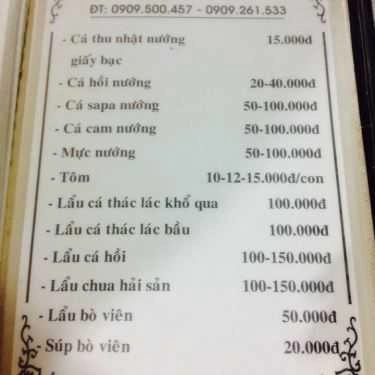 ĐT: 0909.500.457 - 0909.261.533
- Cá thu nhật nướng 15.000đ
giấy bạc
- Cá hồi nướng 20-40.000đ
- Cá sapa mướng 50-100.000đ
- Cá cam nướng 50-100.000đ
- Mực nướng 50-100.000đ
- Tôm 10-12-15.000đ/con
- Lẩu cá thác lác khổ qua 100.000đ
- Lẩu cá thác lác bầu 100.000đ
- Lẩu cá hồi 100-150.000đ
- Lẩu chua hải sản 100-150.000đ
- Lẩu bò viên 50.000đ
- Súp bò viên 20.000đ